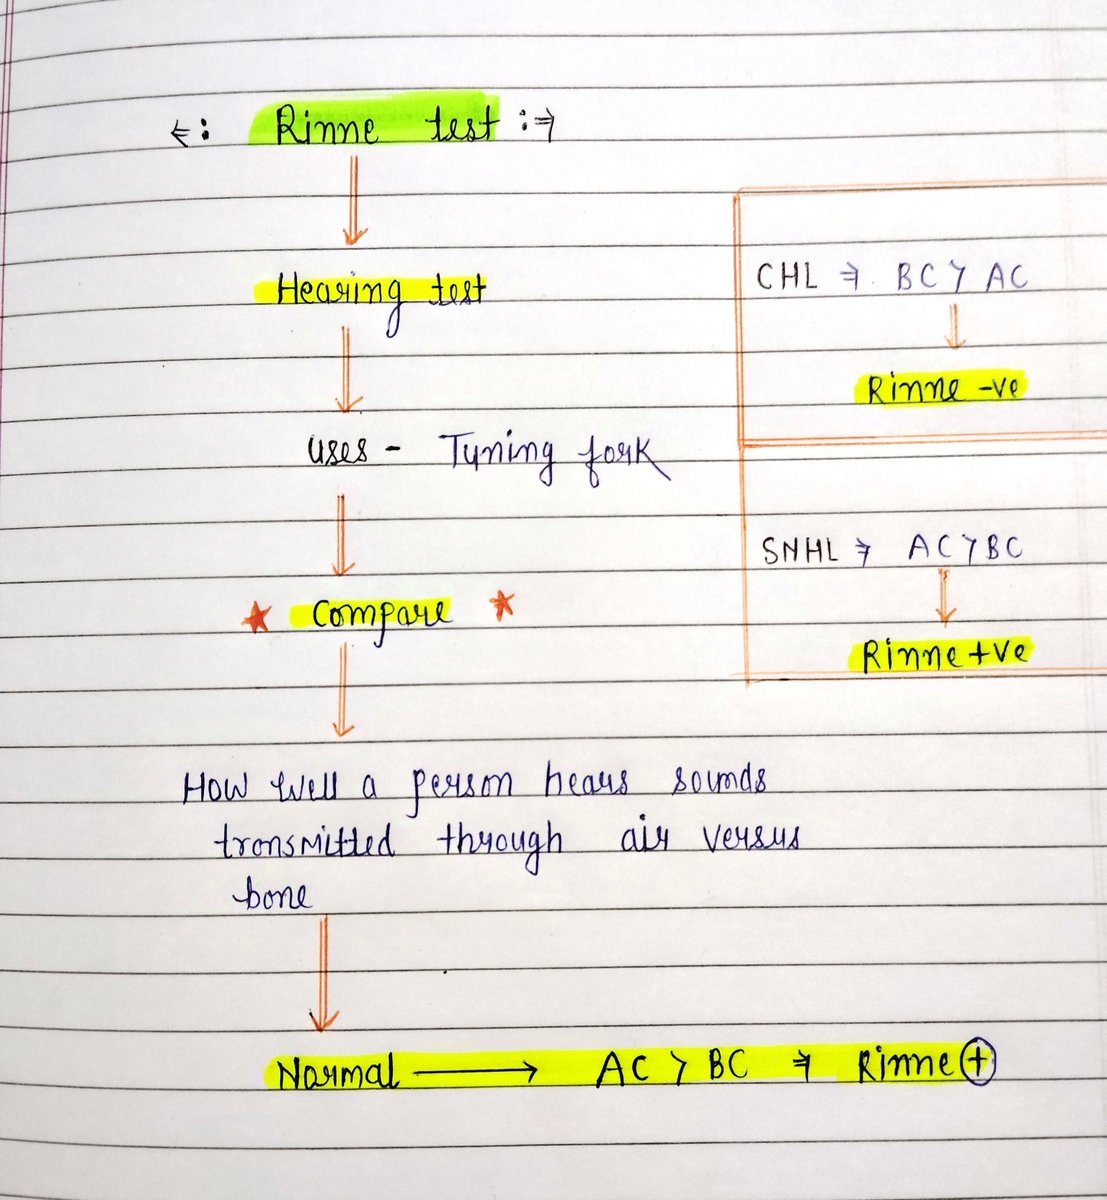 ←: Rinne test :→
Hearing test
uses - Tuning fork
★ Compare ★
How well a person hears sounds
transmitted through air versus
bone
Normal → AC > BC ⇒ Rinne ⊕
CHL ⇒ BC > AC
Rinne -ve
SNHL ⇒ AC > BC
Rinne +ve